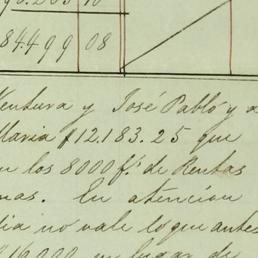 90.283 10
84.499 08
Ventura y José Pablo y a
Maria $12.183.25 que
los 8000 fs. de Rentas
nas. En atencion
dia no vale lo que antes
$16000 en lugar de